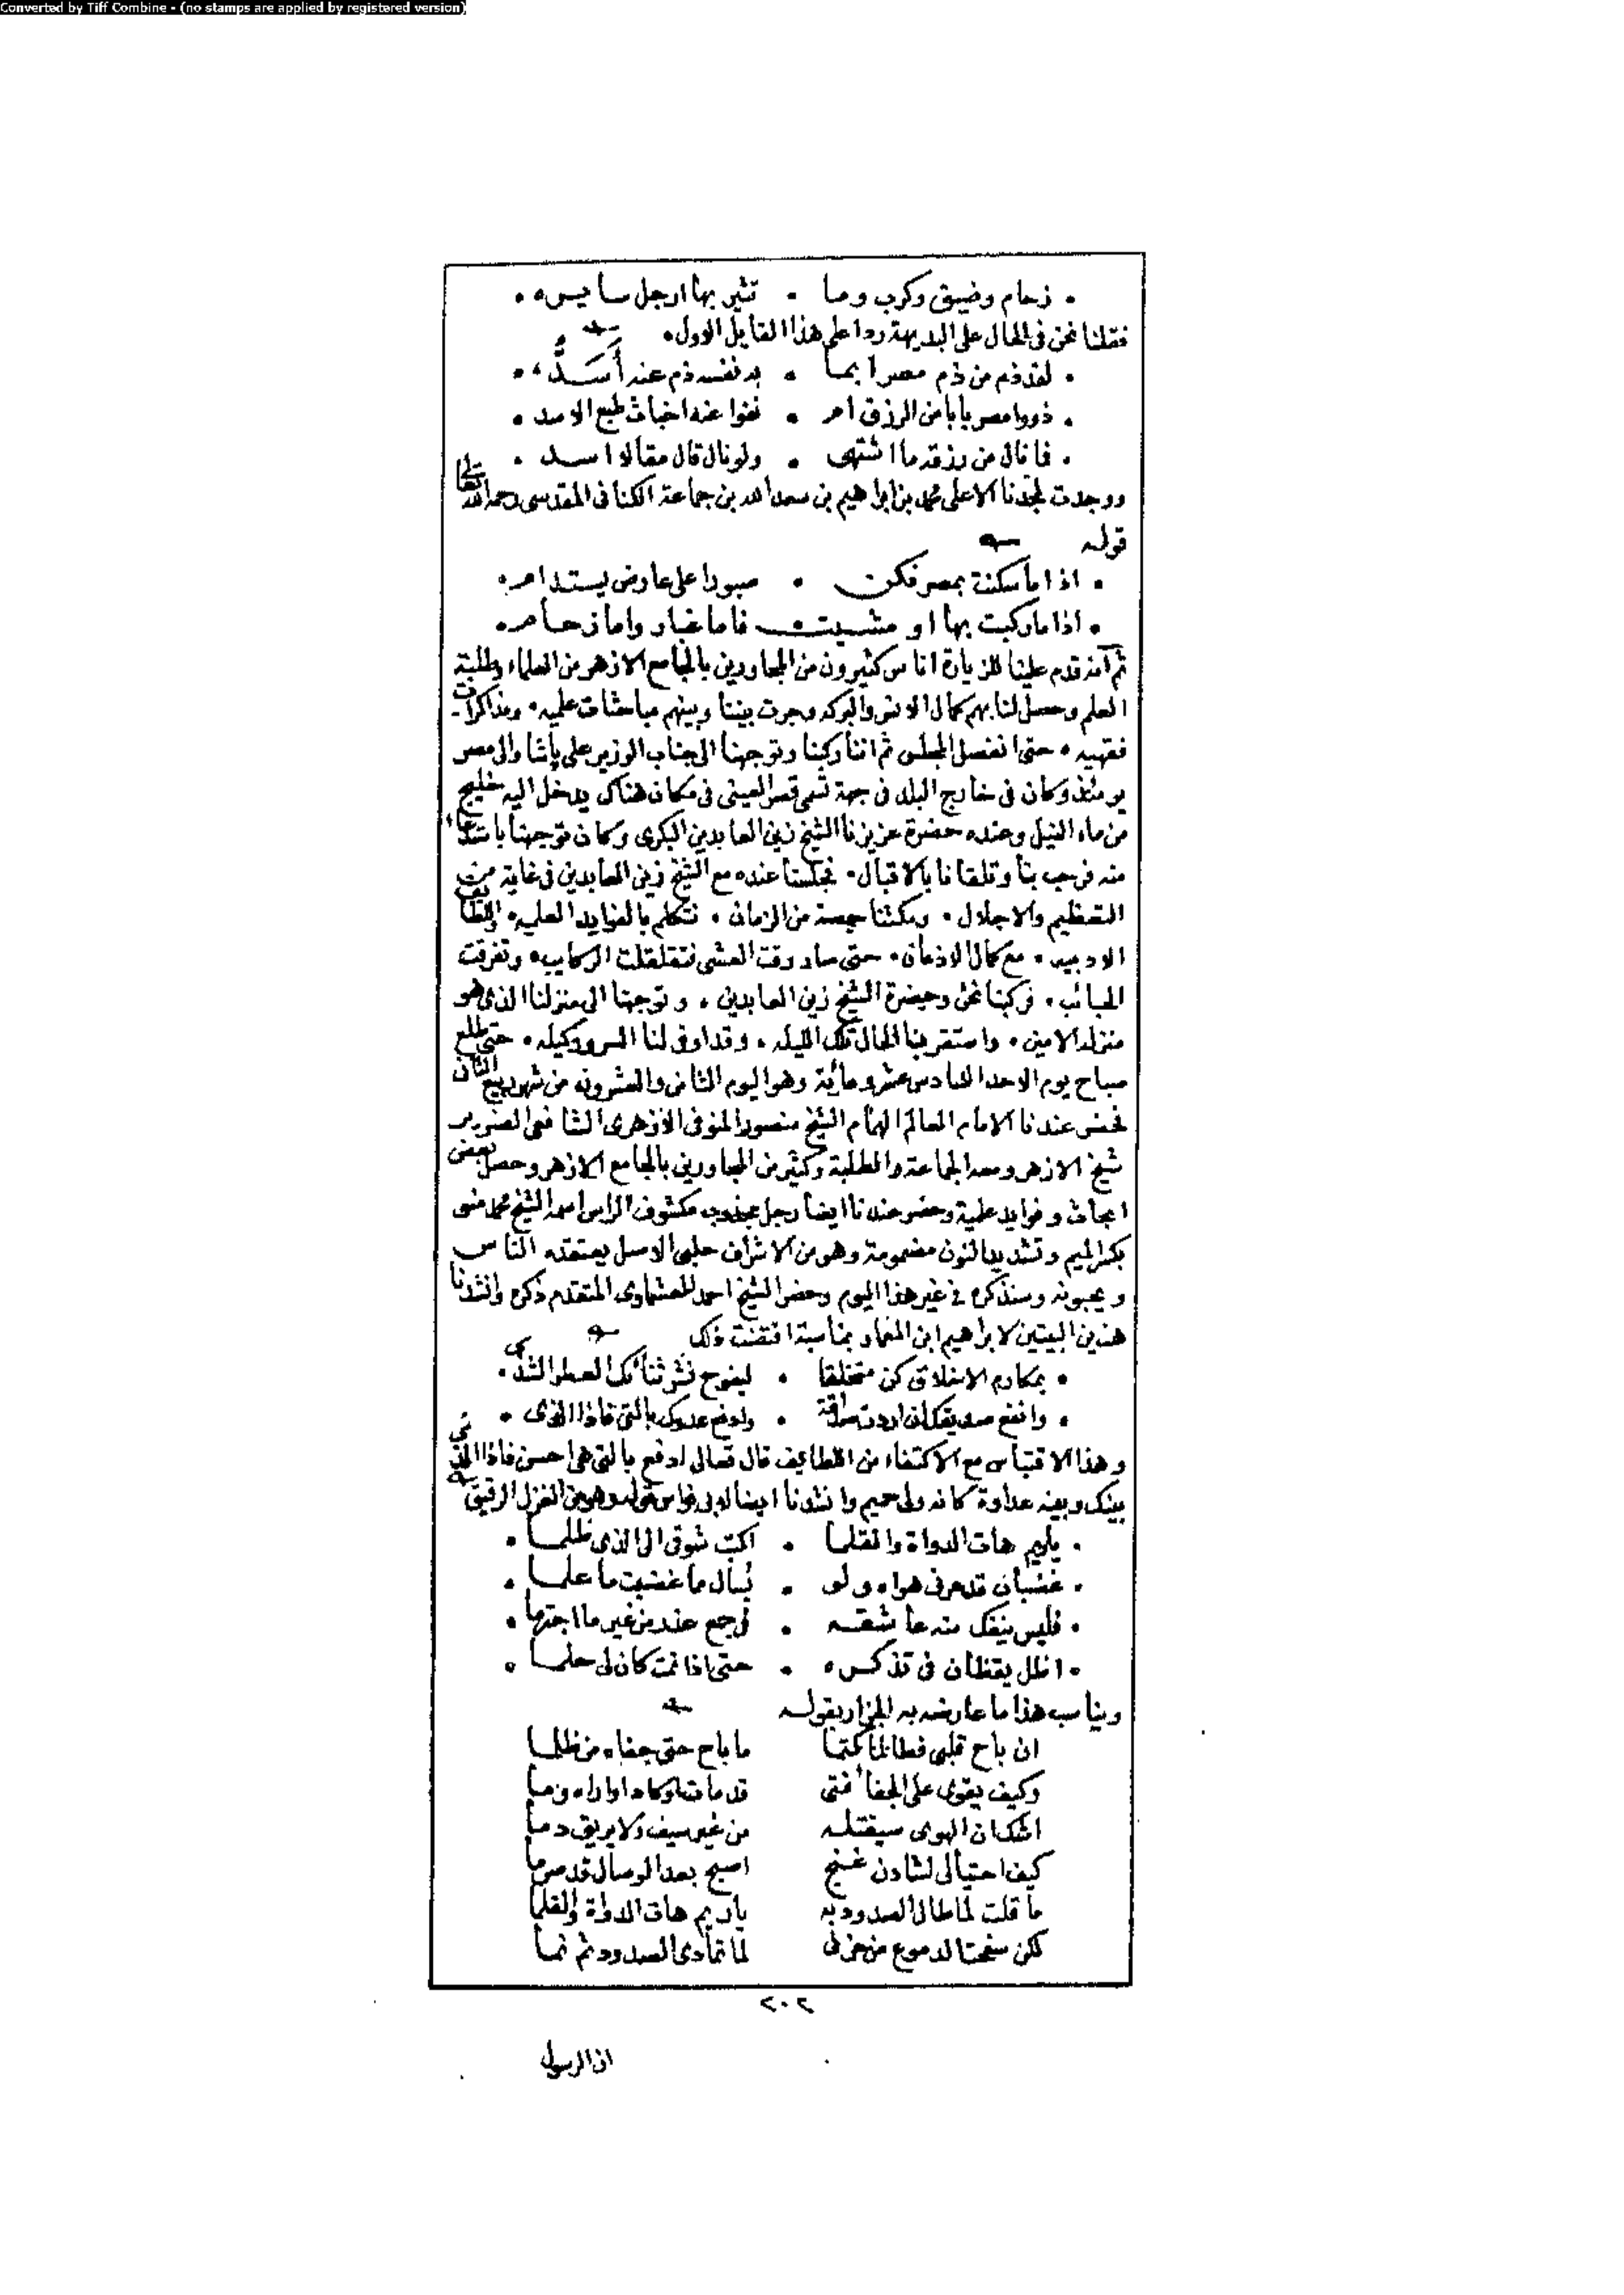 Converted by Tiff Combine - (no stamps are applied by registered version)
زحام وضيق وكرب وما • تثير بها ارجل سايره
فقلنا نحن فى الحال على البديهة ردا على هذا القايل الاول
لقد ذم من ذم مصرا بما • به نفسه ذم عند أَسَدُّ
ذووا مصر بابا من الرزق ام • نفوا عنه اخباث طبع الاسد
فا نال من رزقه ما اشتهى • ولو نال قال مقالا اسد
ووجدت لجدنا الاعلى محمد بن ابراهيم بن سعد الله بن جماعة الكنانى المقدسى رحمه الله تعالى
قوله
اذا ما سكنت بمصر فكن • صبورا على عارض يستدام
اذا ما ركبت بها او مشيت • فاما غبار واما زحام
ثم انه قدم علينا للزيارة اناس كثيرون من المجاورين بالجامع الازهر من العلماء وطلبة
العلم وحصل لنا بهم كمال الانس والبركه وجرت بيننا وبينهم مباحثات علميه • ومذاكرات
فقهيه • حتى انفصل المجلس ثم اننا ركبنا وتوجهنا الى جناب الوزير على باشا والى مصر
يومئذ وكان فى خارج البلد فى جهة تسمى قصر العينى فى مكان هناك يدخل اليه خليج
من ماء النيل وعنده حضرة عزيزنا الشيخ زين العابدين البكرى وكان توجهنا باستدعاء
منه فرحب بنا وتلقانا بالاقبال • فجلسنا عنده مع الشيخ زين العابدين فى غاية من
التعظيم والاجلال • ومكثنا حصة من الزمان • نتكلم بالفوايد العلميه • واللطايف
الادبيه • مع كمال الاذعان • حتى صار وقت العشى فتقلقلت الركايب • وتفرقت
الجبائب • فركبنا نحن وحضرة الشيخ زين العابدين • وتوجهنا الى منزلنا الذى هو
منزله الامين • واستقر بنا الحال تلك الليله • وقد اوفى لنا السرور كيله • حتى طلع
صباح يوم الاحد السادس عشر ومائة وهو اليوم الثانى والعشرون من شهر ربيع الثانى
فحضر عندنا الامام العالم الهمام الشيخ منصور المنوفى الازهرى الشافعى الضرير
شيخ الازهر ومعه الجماعة والطلبة وكثير من المجاورين بالجامع الازهر وحصل بعض
ابحاث وفوايد علمية وحضر عندنا ايضا رجل مجذوب مكشوف الراس اسمه الشيخ محمد منو
بكسر الميم وتشديد النون مضمومة وهو من الاشراف حلبى الاصل يعتقده الناس
ويحبونه وسنذكره فى غير هذا اليوم وحضر الشيخ احمد العشماوى المتقدم ذكره وانشدنا
هذين البيتين لابراهيم ابن المعمار بمناسبة اقتضت ذلك
بمكارم الاخلاق كن متخلقا • ليفوح نشر ثنائك العطر الشذى
وانفع صديقك ان اردت صداقة • وادفع عدوك بالتى فاذا الذى
وهذا الاقتباس مع الاكتفاء من اللطايف قال تعالى ادفع بالتى هى احسن فاذا الذى
بينك وبينه عداوة كانه ولى حميم وانشدنا ايضا لابى نواس قوله وهو من الغزل الرقيق
ياريم هات الدواة والقلما • اكتب شوقى الى الذى ظلما
غضبان قد عرنى هواه ولو • يسال ما غضبت ما علما
فليس ينفك منه عاشقه • فى جمع عذر من غير ما اجترما
اظل يقظان فى تذكره • حتى اذا نمت كان لى حلما
ويناسب هذا ما عارضه به الجزار بقوله
ان باح قلبى فطالما كتما    ما باح حتى جفاه من ظلما
وكيف يقوى على الجفا فتى    قد مات او كاد اواراه وما
اشك ان الهوى سيقتله    من غير سيف ولا يريق دما
كيف احتيالى لشادن غنج    اصبح بعد الوصال قد صرما
ما قلت لما طال الصدود به    ياريم هات الدواة والقلما
لكن سفحت الدموع من حزنى    لما تمادى الصدود ثم نما
٢٠٢
ان الرسول